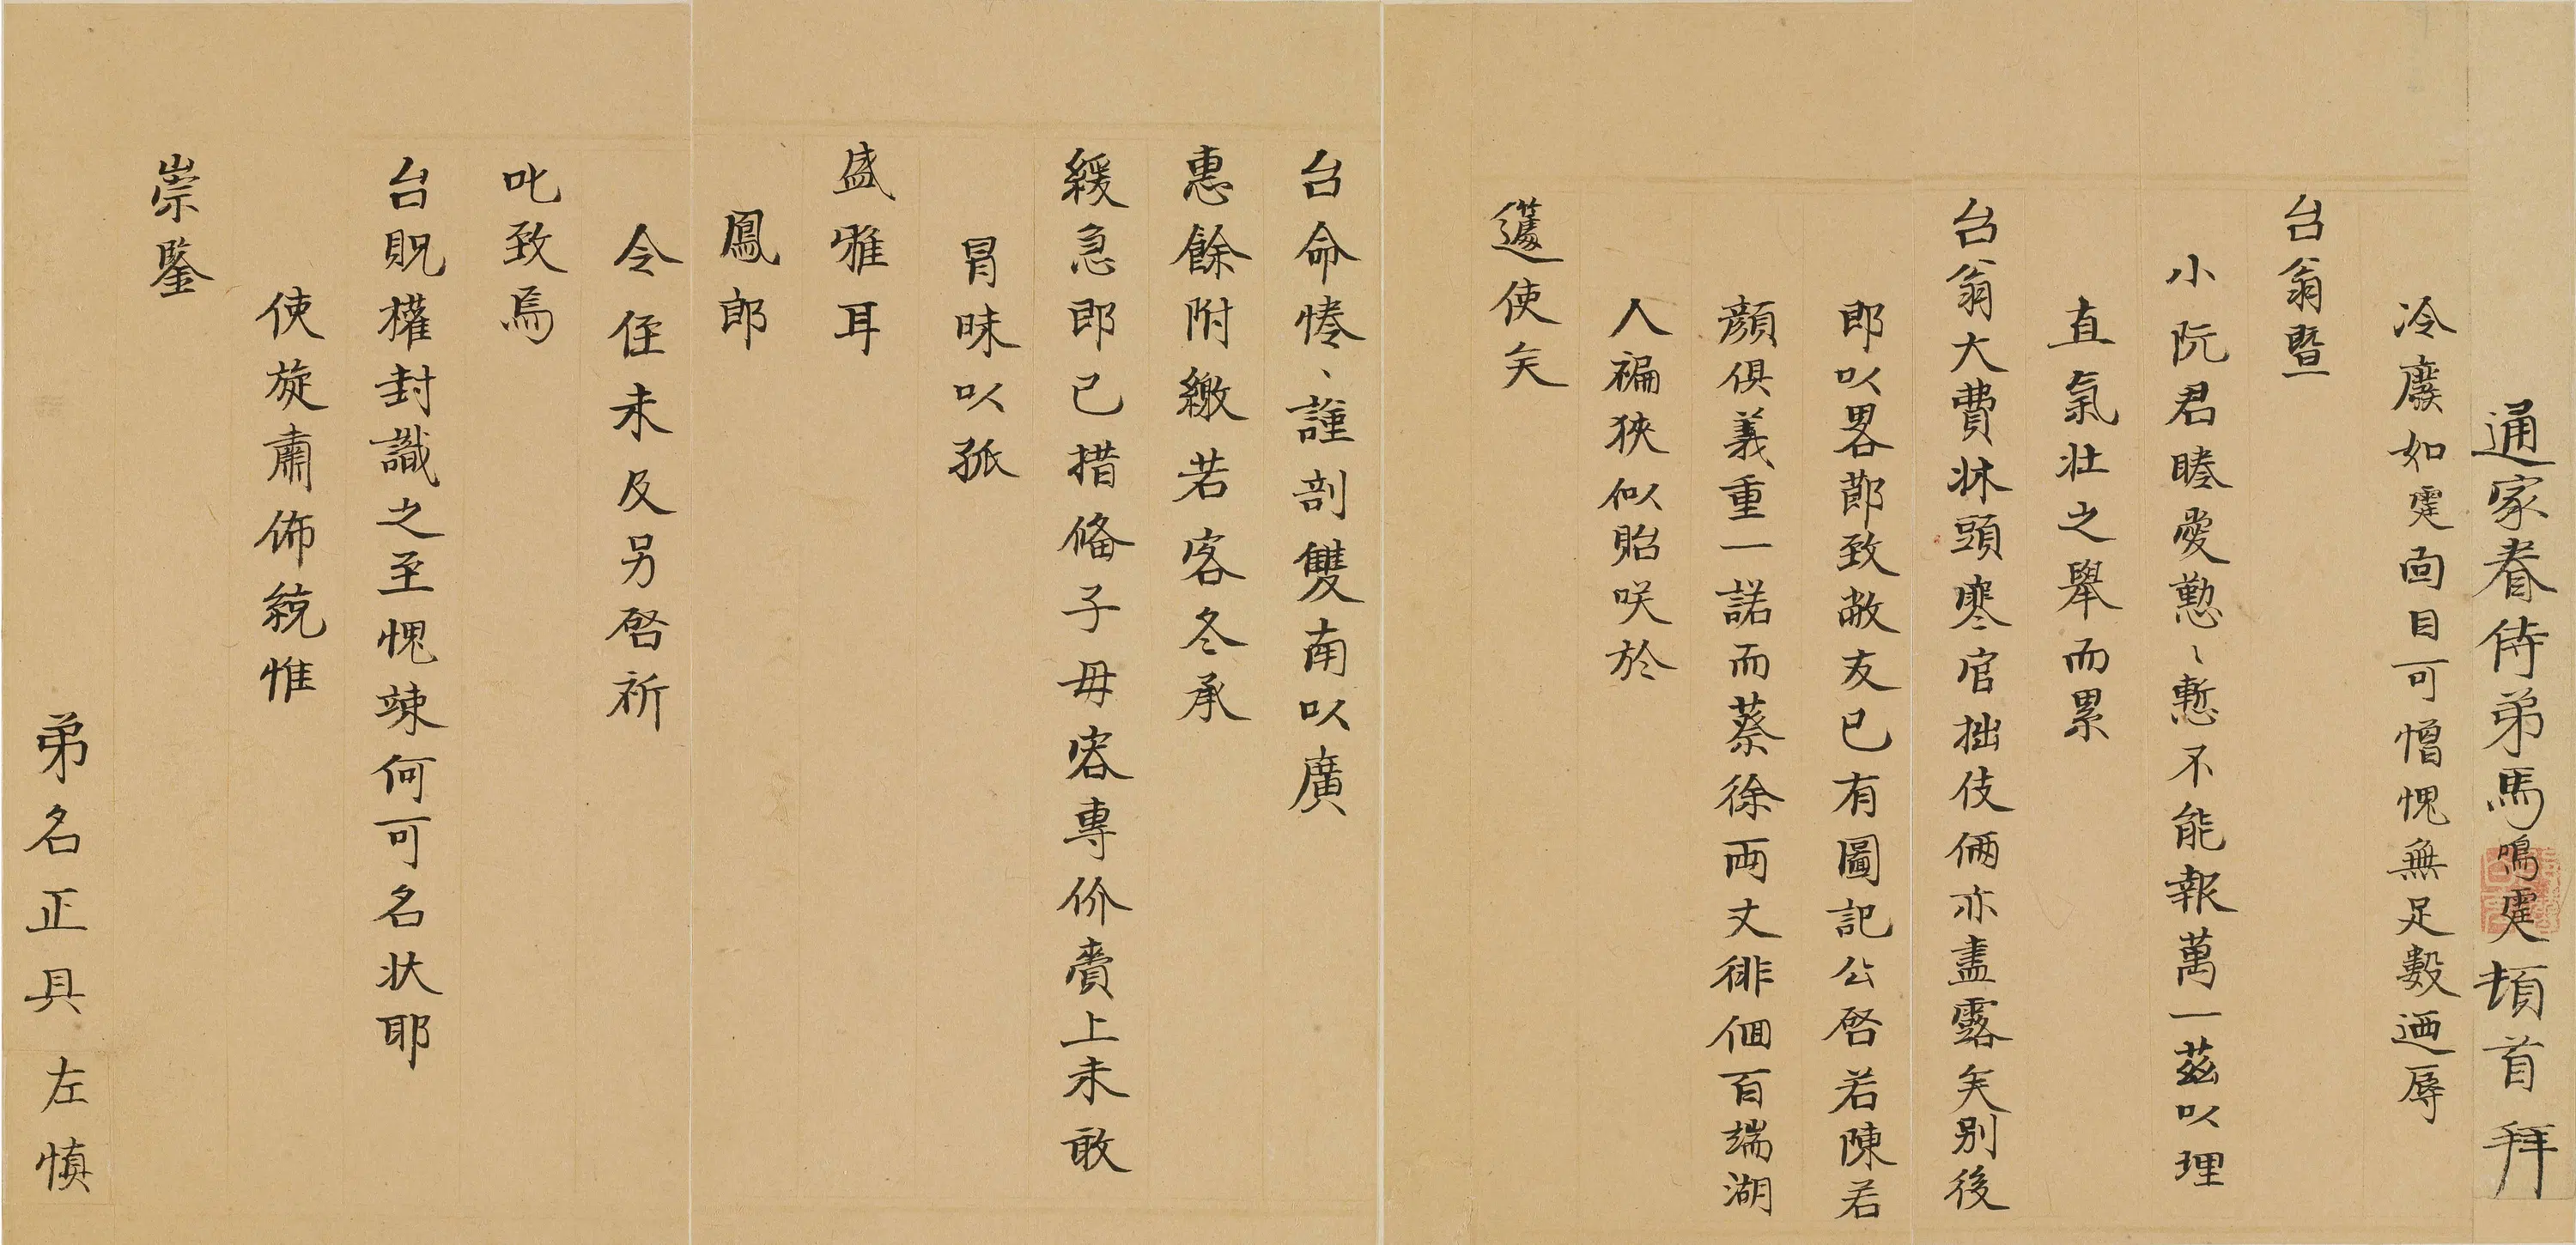 通家眷侍弟馬鳴霆頓首拜
冷廢如霆面目可憎愧無足數迺辱
台翁暨
小阮君睠愛懃〻慙不能報萬一茲以理
直氣壯之舉而累
台翁大費牀頭寒官拙伎倆亦盡露矣別後
即以畧節致敝友已有圖記公啓若陳若
顏俱義重一諾而蔡徐両丈徘徊百端湖
人褊狹似貽咲於
籧使矣
台命惓〻謹剖雙南以廣
惠餘附繳若客冬承
緩急即已措俻子毋容專价賷上未敢
冐昧以孤
盛雅耳
鳳郎
令侄未及另啓祈
叱致焉
台貺權封識之至愧竦何可名状耶
使旋肅佈統惟
崇鑒
弟名正具左慎